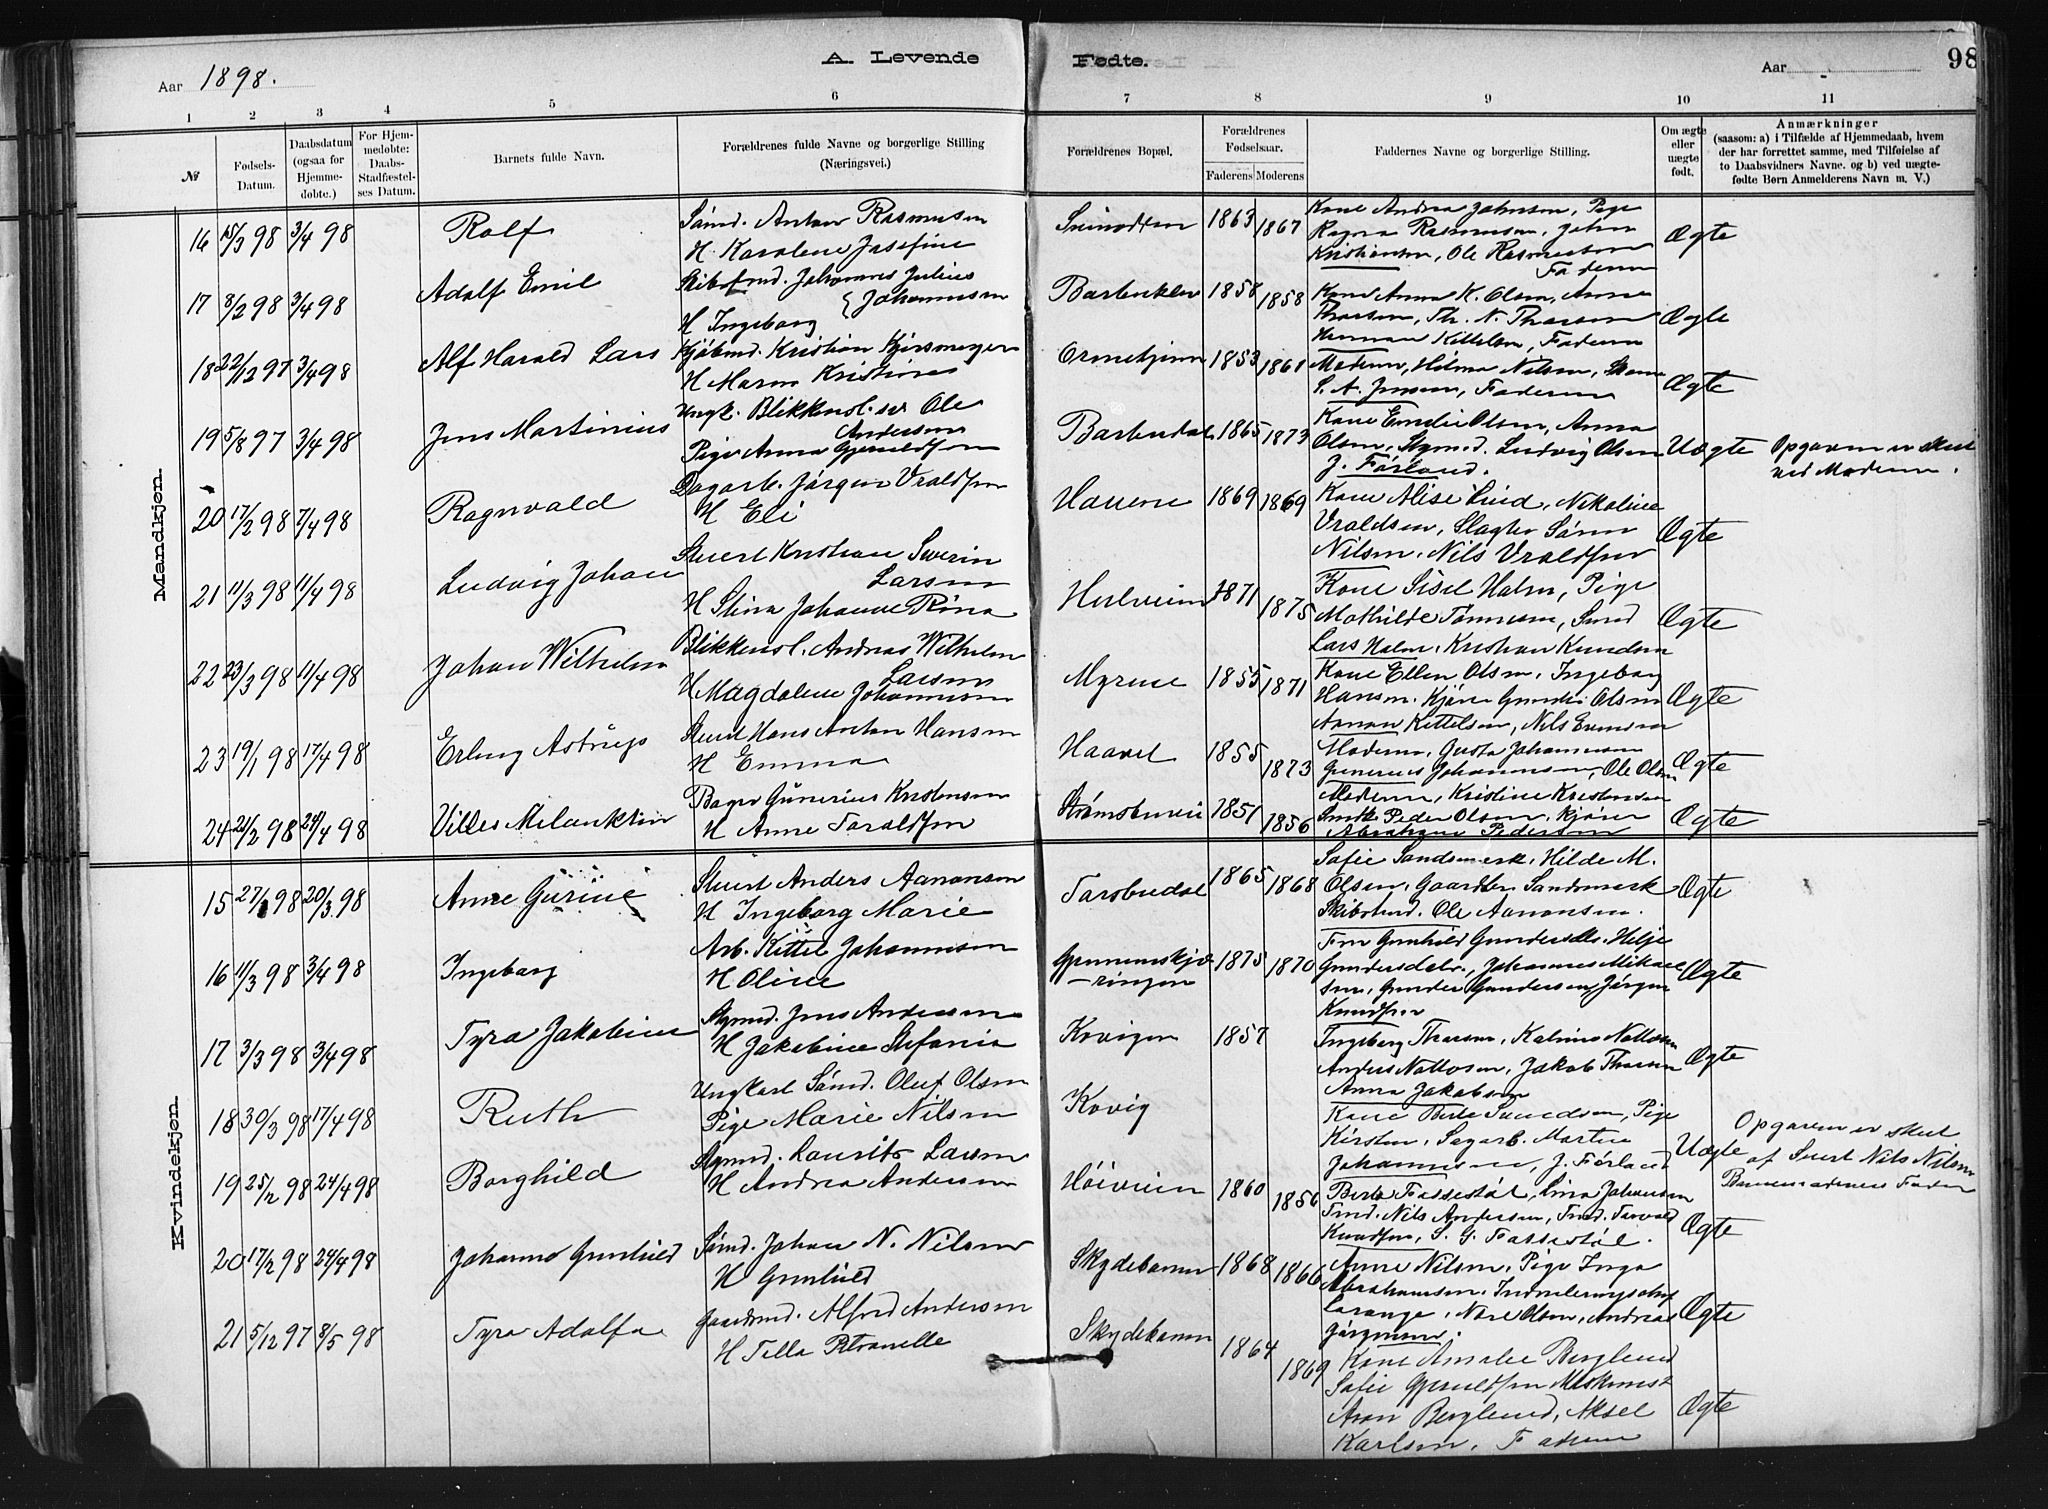 Aar 1898.
A. Levende Fødte.
Aar
98
1 2 3 4 5 6 7 8 9 10 11
№
Fødsels-
Datum.
Daabsdatum
(ogsaa for
Hjemme-
døbte.)
For Hjem-
medøbte:
Daabs-
Stadfæstel-
ses Datum.
Barnets fulde Navn.
Forældrenes fulde Navne og borgerlige Stilling
(Næringsvei.)
Forældrenes Bopæl.
Forældrenes
Fødselsaar.
Faderens Moderens
Faddernes Navne og borgerlige Stilling.
Om ægte
eller
uægte
født.
Anmærkninger
(saasom: a) i Tilfælde af Hjemmedaab, hvem
der har forrettet samme, med Tilføielse af
to Daabsvidners Navne. og b) ved uægte-
fødte Børn Anmelderens Navn m. V.)
Mandkjøn.
16 15/3 98 3/4 98 Rolf
Sømd. Anton Rasmusen
H. Karoline Josefine
1863 1867
Kone Andrea Johnsen, Pige
Ragna Rasmusen, John
Kristiansen, Ole Rasmussen
Faderen
Ægte
17 8/2 98 3/4 98 Adolf Emil
Skibstmd. Johannes Julius
Johannesen
H Ingeborg
Barbukler 1858 1858
Kone Anna K. Olsen, Anna
Thorsen, Th. N. Thorsen
Herman Kittelsen, Faderen
Ægte
18 22/12 97 3/4 98 Alf Harald Lars
Kjøbmd. Kristian
H Maren Kristine
1853 1861
Moderen, Hilma Nilsen,
S. A. Jensen, Faderen
Ægte
19 5/8 97 3/4 98 Jens Martinius
Ungk. Blikkensl. sv Ole
Andersen
Pige Anna Gjeruldsen
Barbudal 1865 1873
Kone Emilie Olsen, Anna
Olsen, Ludvig Olsen
J. Førland.
Uægte
Opgaven er skeet
ved Moderen.
20 17/2 98 7/4 98 Ragnvald
Dagarb. Jørgen Vraldsen
H Eli
Havene 1869 1869
Kone Alise Lind, Nikoline
Vraldsen, Slagter Søren
Nilsen, Nils Vraldsen
Ægte
21 11/3 98 11/4 98 Ludvig Johan
Stuert Kristian Severin
Larsen
H Stina Johanne Rina
1871 1875
Kone Sisel Holm, Pige
Mathilde Tønnesen, Smed
Lars Holm, Kristian Knudsen
Ægte
22 23/3 98 11/4 98 Johan Wilhelm
Blikkensl. Andreas Wilhelm
Larsen
H Magdalene Johannesen
Myrene 1855 1871
Kone Ellen Olsen, Ingeborg
Hansen, Kjører Gunder Olsen
Aanon Kittelsen, Nils Evensen
Ægte
23 19/1 98 17/4 98 Erling Astrup
Stuert Hans Anton Hansen
H Emma
Haavet 1855 1873
Moderen, Gusta Johannesen
Gunerius Johannesen, Ole Olsen
Ægte
24 21/2 98 24/4 98 Villes Melankton
Bager Gunerius Kristensen
H Anne Taraldsen
Strømsbuvei 1851 1856
Moderen, Kristine Kristensen
Smed Peder Olsen, Kjører
Abraham Pedersen
Ægte
Kvindekjøn.
15 27/1 98 20/3 98 Anne Gurine
Stuert Anders Aanonsen
H Ingeborg Marie
Torsbudal 1865 1868
Sofie Sandsmark, Hilde M.
Olsen, Gaardbr. Sandsmark
Skibstmd. Ole Aanonsen.
Ægte
16 11/3 98 3/4 98 Ingeborg
Arb. Kittel Johannesen
H Oline
Gjennemskjæ-
ringen 1875 1870
Fru Gunhild Gundersdtr. Helje
Gundersdtr., Johannes Mikael-
sen, Gunder Gundersen, Jørgen
Knudsen
Ægte
17 3/3 98 3/4 98 Tyra Jakobine
Styrmd. Jens Andersen
H Jakobine Stefania
Kvigen 1857
Ingeborg Thorsen, Katrine Nattosen
Anders Nattosen, Jakob Thorsen
Anna Jakobsen
Ægte
18 30/3 98 17/4 98 Ruth
Ungkarl Sømd. Oluf Olsen
Pige Marie Nilsen
Kovig
Kone Berte Svendsen, Pige
Kirsten, Sagarb. Martin
Johannesen, J. Førland
Uægte
Opgaven er skeet
af Stuert Nils Nilsen
Barnemoderens Fader
19 25/2 98 24/4 98 Borghild
Styrmd. Laurits Larsen
H Andrea Andersen
Høiveien 1860 1856
Berte Fassestøl, Lina Johansen
Tmd. Nils Andersen, Tmd. Torvald
Knudsen, S. G. Fassestøl.
Ægte
20 17/2 98 24/4 98 Johanne Gunhild
Sømd. Johan N. Nilsen
H Gunhild
Skydebanen 1868 1866
Anne Nilsen, Pige Inga
Abrahamsen, Indrulleringschef
Lorange, Nore Olsen, Andreas
Jørgensen.
Ægte
21 5/12 97 8/5 98 Tyra Adolfa
Gaardmd. Alfred Andersen
H Tilla Petronelle
Skydebanen 1864 1869
Kone Amalie Berglund
Sofie Gjeruldsen Maskinist
Aron Berglund, Aksel
Karlsen, Faderen
Ægte